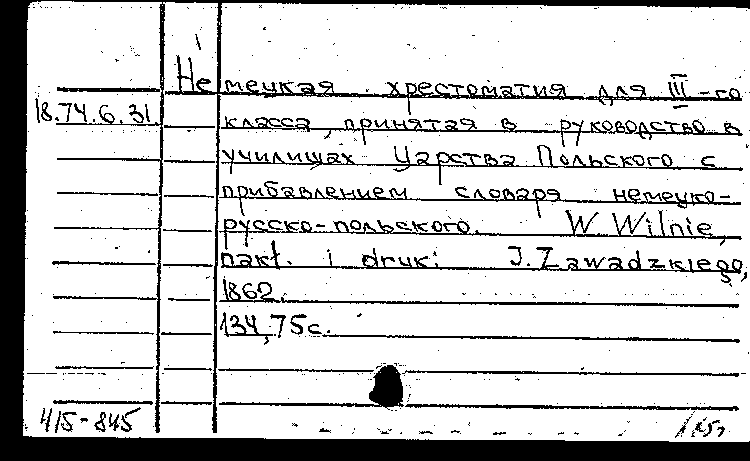 Немецкая хрестоматия для III-го
18.74.6.31.
класса, принятая в руководство в
училищах Царства Польского с
прибавлением словаря немецко-
русско-польского. W Wilnie,
nakł. i druk: J. Zawadzkiego,
1862.
134, 75с.
415-845